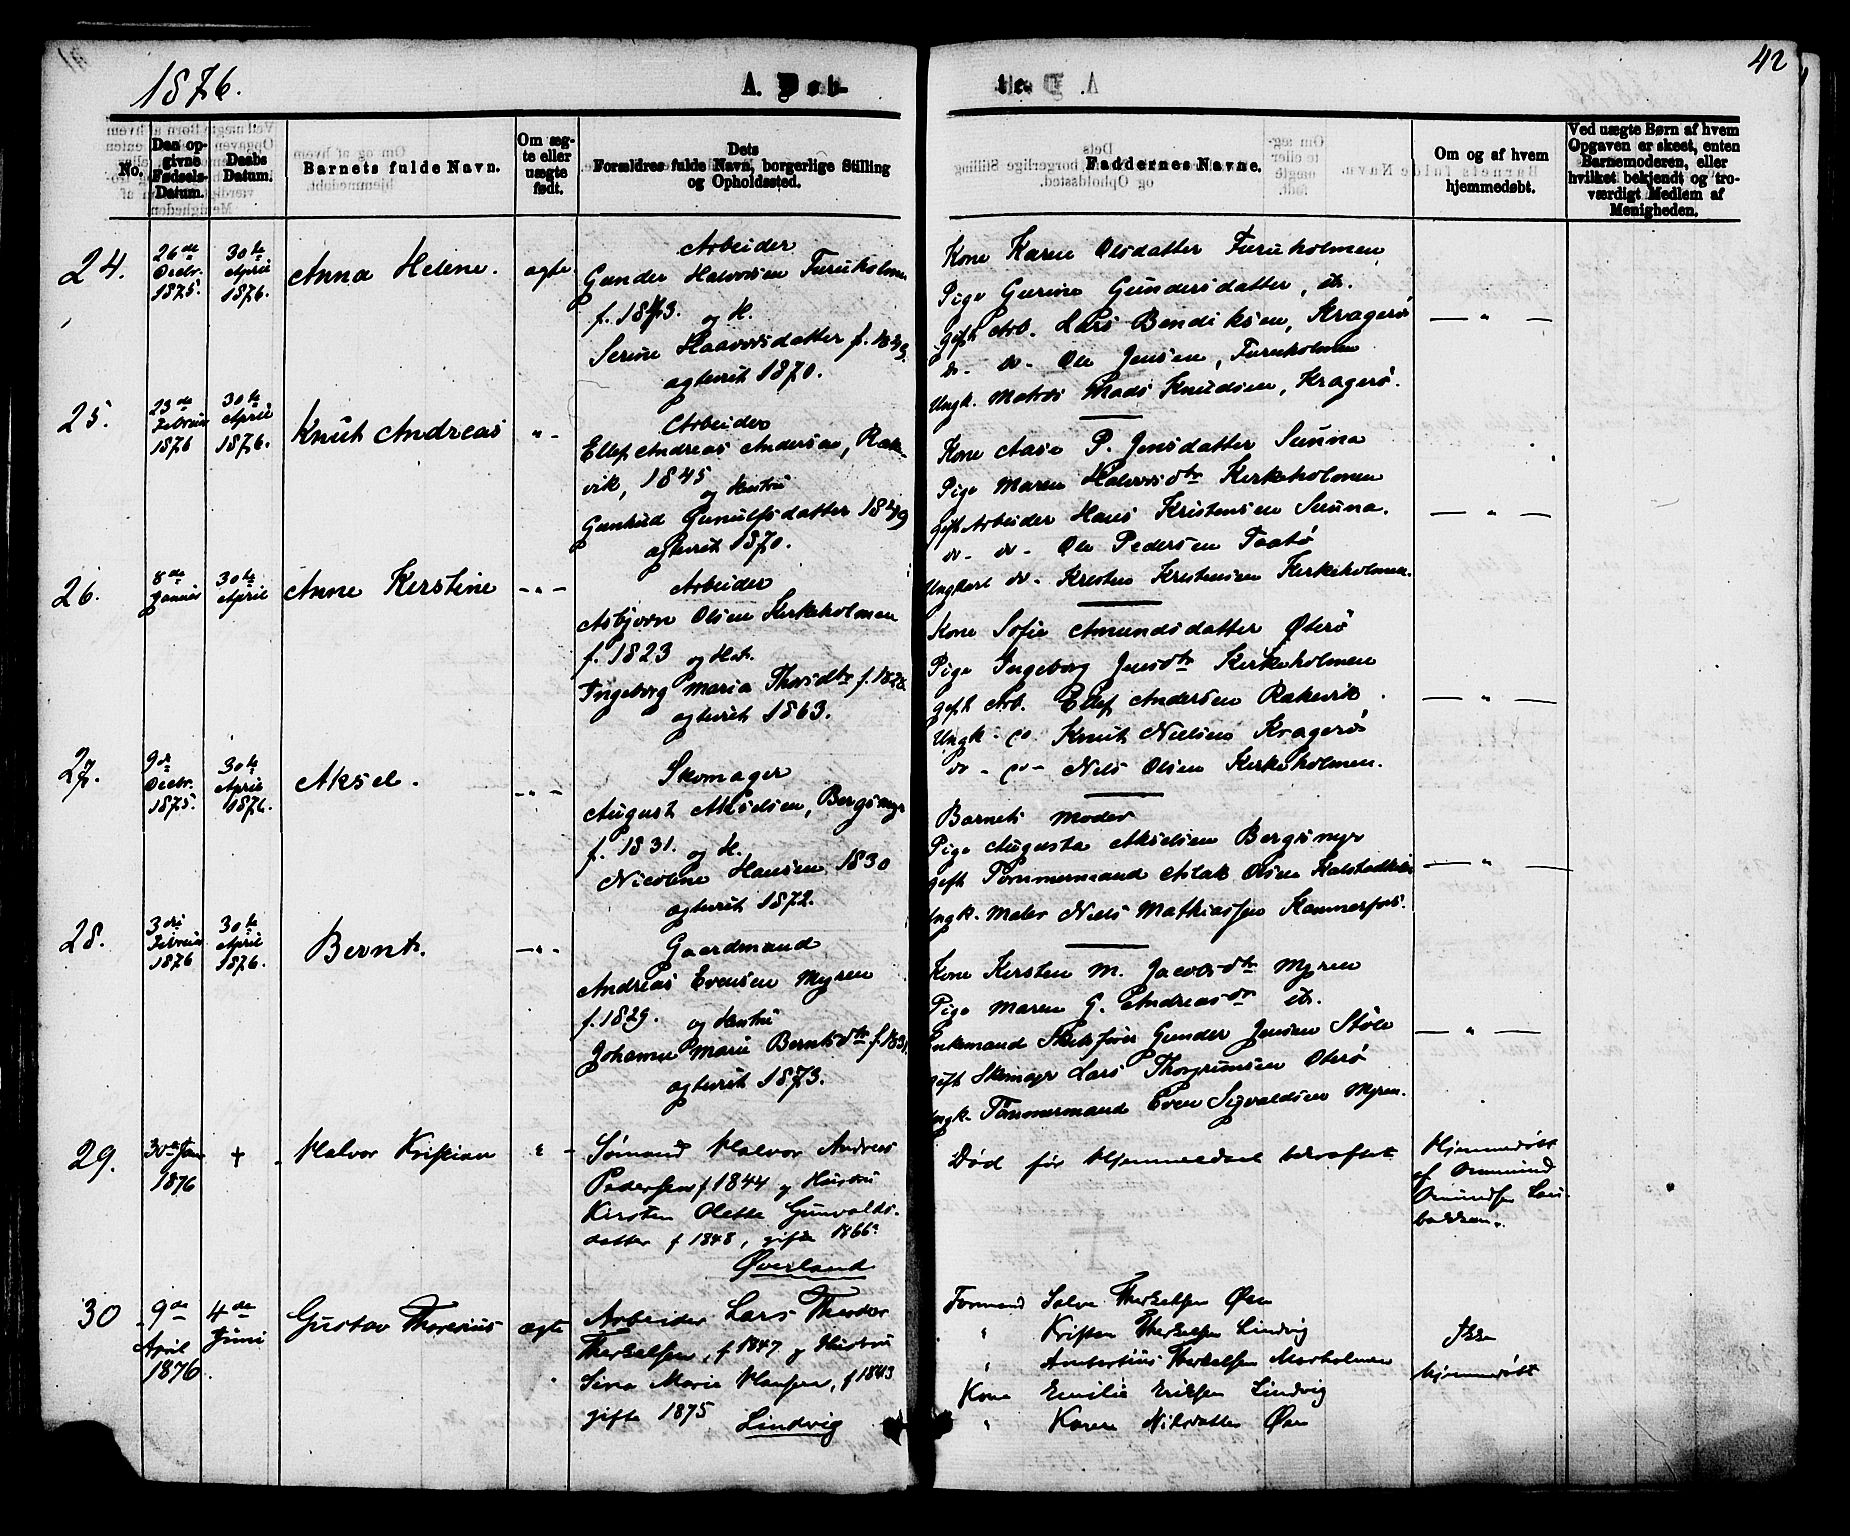 42
1876.
A. Døb-
te.
No.
Den op-
givne
Fødsels-
Datum.
Daabs
Datum.
Barnets fulde Navn.
Om æg-
te eller
uægte
født.
Dets
Forældres fulde Navn, borgerlige Stilling
og Opholdssted.
Faddernes Navne.
Om og af hvem
hjemmedøbt.
Ved uægte Børn af hvem
Opgaven er skeet, enten
Barnemoderen, eller
hvilket bekjendt og tro-
værdigt Medlem af
Menigheden.
24.
26de
Decbr.
1875.
30te
April
1876.
Anna Helene.
ægte
Arbeider
Gunder Halvorsen Furuholmen
f. 1843. og H.
Serine Haavorsdatter f.
agteviet 1870.
Kone Karen Olsdatter Furuholmen
Pige Gurine Gundersdatter, ib.
gift Arb. Lars Bendiksen, Kragerø
do - do - Ole Jensen, Furuholmen
Ungk. Matros Mads Knudsen, Kragerø.
— " —
25.
23de
Februar
1876
30te
April
1876.
Knut Andreas
- " -
Arbeider
Ellef Andreas Andersen, Rak-
vik, 1845 og Hustru
Gunhild Gunulfsdatter 1849
agteviet 1870.
Kone Aase P. Jensdatter Suuna
Pige Maren Halvorsdtr Kirkeholmen
gift Arbeider Hans Kristensen Suuna.
do - do - Ole Pedersen Taatø
Ungkarl do - Kristen Kristensen Kirkeholmen.
— " —
26.
8de
Januar
30te
April
Anne Kerstine
- " -
Arbeider
Asbjørn Olsen Kirkeholmen
f. 1823 og Hst.
Ingeborg Maria Thorsdtr f.
agteviet 1863.
Kone Sofie Amundsdatter Øterø
Pige Ingeborg Jensdtr Kirkeholmen
gift Arb. Ellef Andersen Rakevik
Ungk. do Knut Nielsen Kragerø
do - do - Nils Olsen Kirkeholmen.
— " —
27.
9de
Decbr.
1875.
30te
April
1876.
Aksel.
- " -
Skomager
August Akselsen, Bergsmyr
f. 1831. og H.
Nicoline Hansen 1830
agteviet 1872.
Barnets Moder
Pige Augusta Akselsen Bergsmyr
gift Tømmermand Aslak Olsen
Ungk. Maler Niels Mathiassen Kammerfos.
— " —
28.
3die
Februar
1876
30te
April
1876.
Bernt.
- " -
Gaardmand
Andreas Evensen Myren
f. 1829. og Hustru
Johanne Marie Berntsdtr f. 1831.
agteviet 1873.
Kone Kersten M. Jacobsdtr Myren
Pige Maren G. Andreasdtr ib.
Enkemand Skibsfører Gunder Jensen Støle
gift Skomager Lars Thorgrimsen Oterø
Ungk. Tømmermand Even Sigvaldsen Myren.
— " —
29.
30te Jan
1876
†
Halvor Kristian
"
Sømand Halvor Andreas
Pedersen f 1844 og Hustru
Kirsten Olette Gunvalds-
datter f 1848, gifte 1866.
Øverland
Død før Hjemmedaab bekræftet
Hjemmedøbt
af Ommund
Omundsen
bakken.
30
9de
April
1876
4de
Juni
Gustav Thoresius
ægte
Arbeider Lars Theodor
Therkelsen, f 1847 og Hustru
Sina Marie Hansen, f 1843
gifte 1875 Lindvig
Formand Salve Therkelsen Øen
" Kristen Therkelsen Lindvig
" Ambertius Therkelsen Morholmen
Kone Emilie Eriksen Lindvig
" Karen Nilsdatter Øen
Ikke
hjemmedøbt